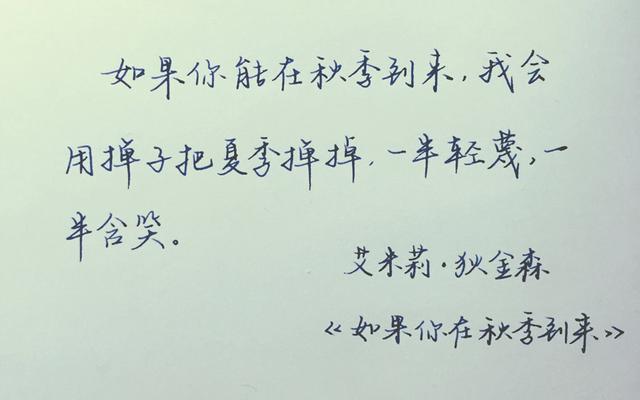 如果你能在秋季到来,我会
用掸子把夏季掸掉,一半轻蔑,一
半含笑。
艾米莉·狄金森
《如果你在秋季到来》